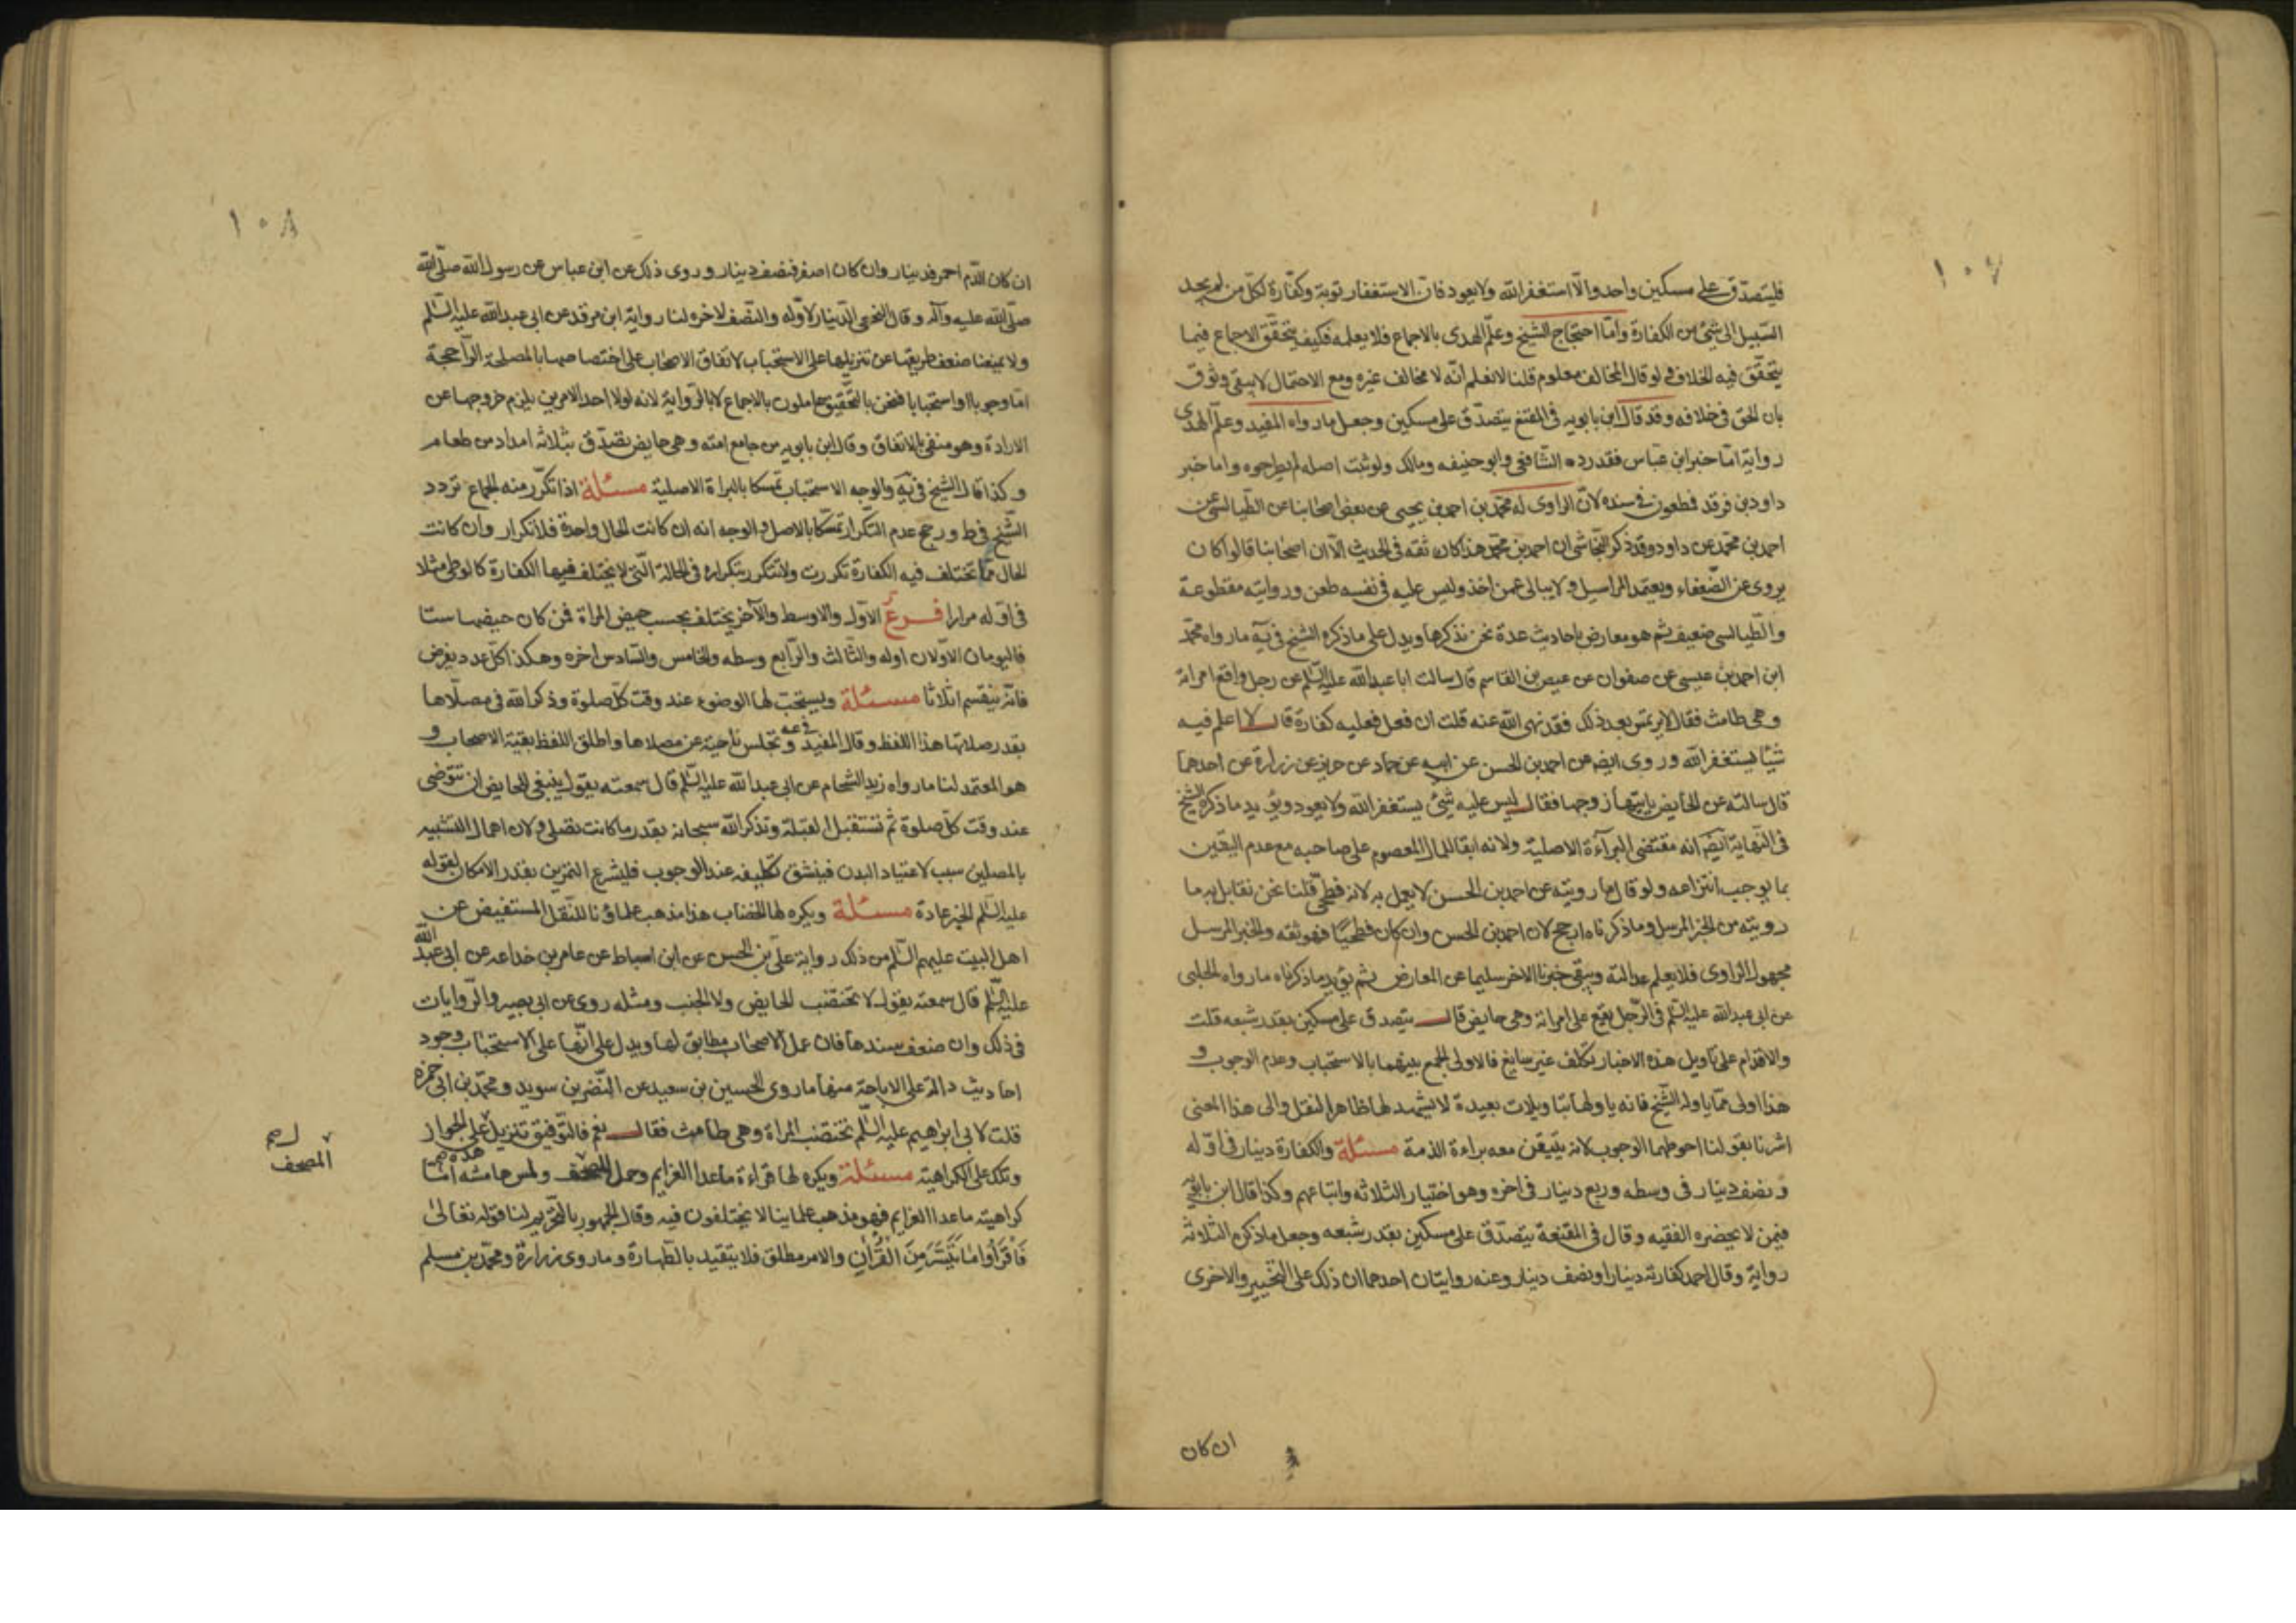 ١٠٧
فليتصدّق على مسكين واحد والّا استغفر الله ولا يعود فانّ الاستغفار توبة وكفّارة لكل من لم يجد
السّبيل الى شيئ من الكفارة وامّا احتجاج الشيخ وعلم الهدى بالاجماع فلا يعلمه فكيف يتحقّق الاجماع فيما
يتحقّق فيه الخلاف ولو قال المخالف معلوم قلنا لا نعلم انّه لا مخالف غيره ومع الاحتمال لا يبقى وثوق
بان الحق في خلافه وقد قال ابن بابويه في المقنع يتصدّق على مسكين وجعل ما رواه المفيد وعلم الهدى
رواية امّا خبر ابن عبّاس فقد رده الشّافعي وابو حنيفه ومالك ولو ثبت اصله لم يطرحوه واما خبر
داود بن فرقد فطعون في سنده لانّ الراوى له محمّد بن احمد بن يحيى عن بعض اصحابنا عن الطّيالسى عن
احمد بن محمّد عن داود وقد ذكر النّجاشى ان احمد بن محمّد هذا كان ثقه في الحديث الّا ان اصحابنا قالوا كان
يروى عن الضّعفاء ويعتمد المراسيل ولا يبالى عمن اخذ وليس عليه في نفسه طعن وروايته مقطوعة
والطّيالسى ضعيف ثم هو معارض باحاديث عدة نحن نذكرها ويدل على ما ذكره الشيخ في يه ما رواه محمّد
ابن احمد بن عيسى عن صفوان عن عيص بن القاسم قال سالت ابا عبد الله عليه السّلم عن رجل واقع امراته
وهى طامث فقال لا يلتمس بعد ذلك فقد نهى الله عنه قلت ان فعل فعليه كفارة قال لا اعلم فيه
شيئا يستغفر الله وروى ايضه عن احمد بن الحسن عن ابيه عن حماد عن حريز عن زرارة عن احدهما
قال سالته عن الحايض ياتيها زوجها فقال ليس عليه شيئ يستغفر الله ولا يعود ويؤيد ما ذكره الشيخ
في النّهاية ايضه انه مقتضى البرآءة الاصلية ولانه ابقا للمال المعصوم على صاحبه مع عدم اليقين
بما يوجب انتزاعه ولو قال ما رويته عن احمد بن الحسن لا يعمل به لانه فطحىّ قلنا نحن نقابل به ما
رويته من الخبر المرسل وما ذكرناه ارجح لان احمد بن الحسن وان كان فطحيّا فهو ثقه والخبر المرسل
مجهول الراوى فلا يعلم عدالته ويبقى خبرنا الاخر سليما عن المعارض ثم يؤيد ما ذكرناه ما رواه الحلبى
عن ابى عبد الله عليه السّلم في الرّجل يقع على امراته وهى حايض قال يتصدق على مسكين بقدر شبعه قلت
والاقدام على تاويل هذه الاخبار تكلف غير سايغ فالاولى الجمع بينهما بالاستحباب وعدم الوجوب و
هذا اولى ممّا ياوله الشّيخ فانه ياولها بتاويلات بعيدة لا يشهد لها ظاهر النقل والى هذا المعنى
اشرنا بقولنا احوطهما الوجوب لانه يتيقن معه براءة الذمة مسئلة والكفارة دينار في اوّله
ونصف دينار في وسطه وربع دينار في اخره وهو اختيار الثلاثه واتباعهم وكذا قال ابن بابويه
فيمن لا يحضره الفقيه وقال في المقنعة يتصدّق على مسكين بقدر شبعه وجعل ما ذكره الثلاثة
رواية وقال احمد كفارته دينار او نصف دينار وعنه روايتان احدهما ان ذلك على التخيير والاخرى
ان كان
١٠٨
ان كان الدّم احمر فدينار وان كان اصفر فنصف دينار وروى ذلك عن ابن عباس عن رسول الله صلّى الله
صلّى الله عليه وآله وقال النخعى الدّينار لاوّله والنّصف لاخره لنا رواية ابن فرقد عن ابى عبد الله عليه السّلم
ولا يمنعنا ضعف طريقها عن تنزيلها على الاستحباب لاتفاق الاصحاب على اختصاصها بالمصلحة الرّاجحة
امّا وجوبا او استحبابا فنحن بالتّحقيق عاملون بالاجماع لا بالرّواية لانه لولا احد الامرين يلزم خروجها عن
الارادة وهو منفى بالاتفاق وقال ابن بابويه من جامع امته وهى حايض تصدّق بثلاثه امداد من طعام
وكذا قال الشيخ في يه والوجه الاستحباب تمسكا بالبراة الاصلية مسئلة اذا تكرّر منه الجماع تردد
الشّيخ في ط ورجح عدم التكرار تمسّكا بالاصل والوجه انه ان كانت الحال واحدة فلا تكرار وان كانت
الحال ممّا تختلف فيه الكفارة تكررت ولا تتكرر بتكراره في الحالة الّتى لا يختلف فيها الكفارة كالوطى مثلا
في اوّله مرارا فرع الاوّل والاوسط والآخر يختلف بحسب حيض المراة فمن كان حيضها ستا
فاليومان الاوّلان اوله والثّالث والرّابع وسطه والخامس والسّادس اخره وهكذا كلّ عدد يفرض
فانّه ينقسم اثلاثا مسئلة ويستحب لها الوضوء عند وقت كلّ صلوة وذكر الله في مصلّاها
بقدر صلاتها هذا اللفظ وقال المفيد في عه وتجلس ناحية عن مصلاها واطلق اللفظ بقية الاصحاب و
هو المعتمد لنا ما رواه زيد الشحام عن ابى عبد الله عليه السّلم قال سمعته يقول ينبغى للحايض ان تتوضى
عند وقت كلّ صلوة ثم تستقبل القبلة وتذكر الله سبحانه بقدر ما كانت تصلى ولان اهمال التشبيه
بالمصلين سبب لاعتياد البدن فيشق تكليفه عند الوجوب فليشرع التمرين بقدر الامكان لقوله
عليه السّلم الخير عادة مسئلة ويكره لها الخضاب هذا مذهب علماؤنا للنّقل المستفيض عن
اهل البيت عليهم السّلم من ذلك رواية علىّ بن الحسن عن ابن اسباط عن عامر بن خداعه عن ابى عبد الله
عليه السّلم قال سمعته يقول لا تختضب الحايض ولا الجنب ومثله روى عن ابى بصير والرّوايات
في ذلك وان ضعف سندها فان عمل الاصحاب مطابق لها ويدل على انّها على الاستحباب وجود
احاديث دالة على الاباحة منها ما روى الحسين بن سعيد عن النّضر بن سويد ومحمّد بن ابى حمزه
قلت لابى ابراهيم عليه السّلم تختضب المراة وهى طامث فقال نعم فالتّوفيق تنزيل هذه على الجواز
وتلك على الكراهية مسئلة ويكره لها قراءة ما عدا العزايم وحمل المصحف ولمس هامشه امّا
المصحف
كراهية ما عدا العزايم فهو مذهب علماينا لا يختلفون فيه وقال الجمهور بالتّحريم لنا قوله تعالى
فَاقْرَأُوا مَا تَيَسَّرَ مِنَ الْقُرْآنِ والامر مطلق فلا يتقيد بالطّهارة وما روى زرارة ومحمّد بن مسلم